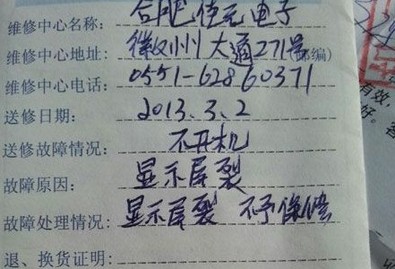 维修中心名称: 合肥佳元电子
维修中心地址: 徽州大道271号(邮编)
维修中心电话: 0551-62860371
送修日期: 2013.3.2
送修故障情况: 不开机
故障原因: 显示屏裂
故障处理情况: 显示屏裂 不予保修
退、换货证明:
有效,
好。